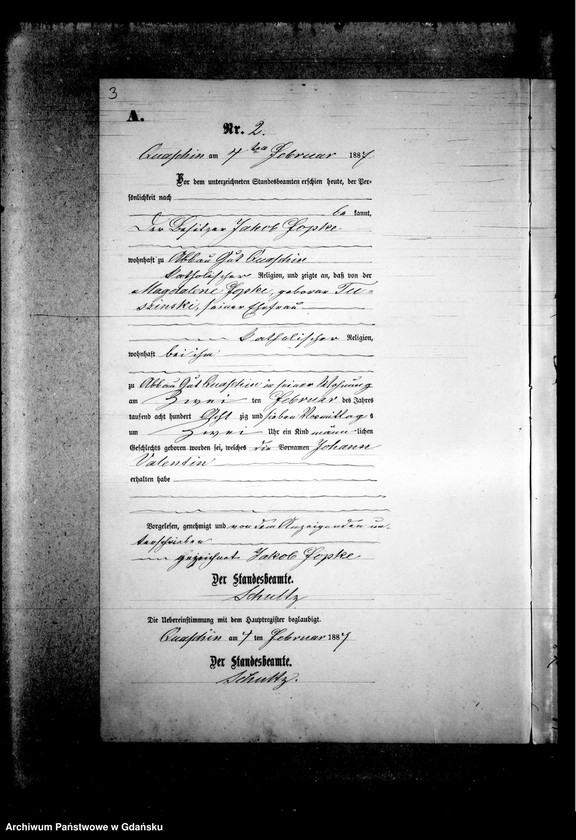 3
A.
Nr. 2.
Quaschin am 7 ten Februar 1887.
Vor dem unterzeichneten Standesbeamten erschien heute, der Per-
sönlichkeit nach
be kannt,
Der Besitzer Jakob
wohnhaft zu Abbau Gut Quaschin
katholischer Religion, und zeigte an, daß von der
Magdalene geborne
seiner Ehefrau
katholischer Religion,
wohnhaft bei ihm
zu Abbau Gut Quaschin in seiner Wohnung
am Zwei ten Februar des Jahres
tausend acht hundert Acht zig und sieben Vormittag s
um Zwei Uhr ein Kind männ lichen
Geschlechts geboren worden sei, welches die Vornamen Johann
Valentin
erhalten habe
Vorgelesen, genehmigt und von dem Anzeigenden un-
terschrieben
gezeichnet Jakob
Der Standesbeamte.
Schultz
Die Uebereinstimmung mit dem Hauptregister beglaubigt.
Quaschin am 7 ten Februar 1887
Der Standesbeamte.
Schultz.
Archiwum Państwowe w Gdańsku